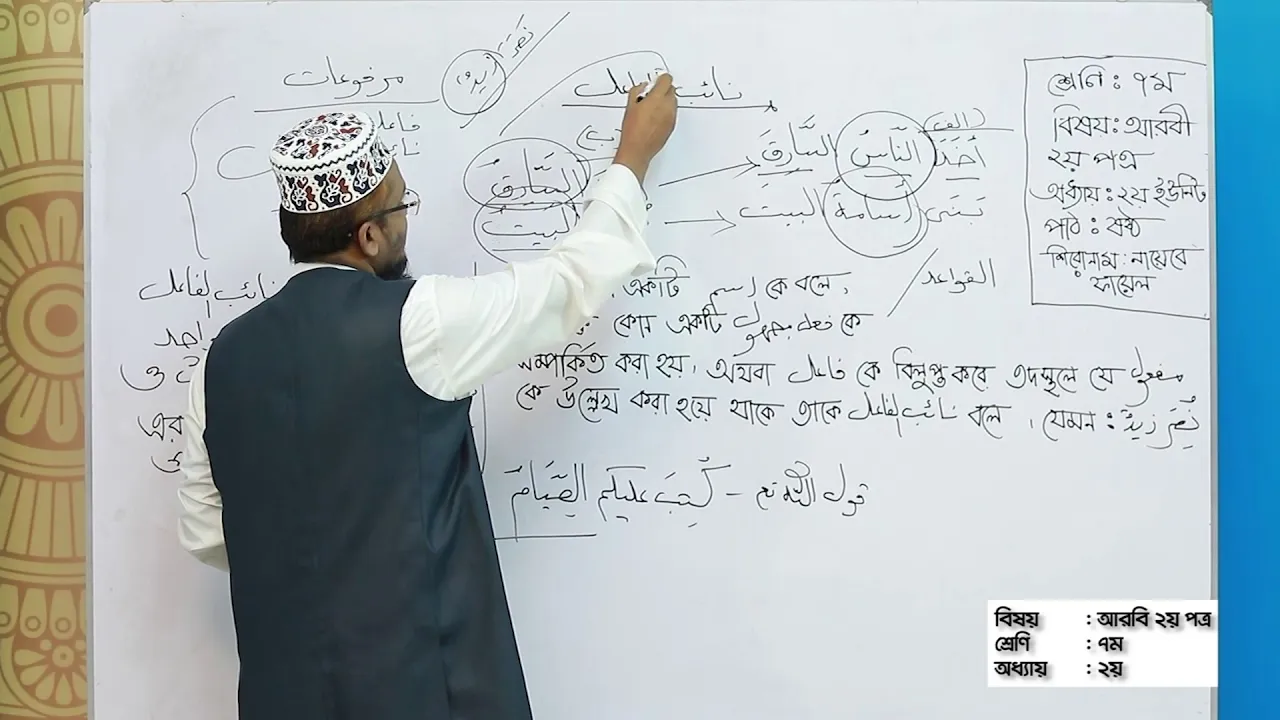 مرفوعات
زيد
نصر
فاعل
نائب
نائب الفاعل
(الف)
أخذ الناس السارق
تبنى أسامة البيت
(ب)
السارق
البيت
القواعد
শ্রেণি : ৭ম
বিষয়: আরবী
২য় পত্র
অধ্যায় : ২য় ইউনিট
পাঠ : ষষ্ঠ
শিরোনাম : নায়েবে
ফায়েল
একটি اسم কে বলে,
কোন একটি فعل مجهول কে
সম্পর্কিত করা হয়, অথবা فاعل কে বিলুপ্ত করে তদস্থলে যে مفعول
কে উল্লেখ করা হয়ে থাকে তাকে نائب الفاعل বলে, যেমন : نُصِرَ زيدٌ
نائب الفاعل
واحد
ও
এর
قول الله تع - كُتِبَ عليكم الصِّيَامُ
বিষয় : আরবি ২য় পত্র
শ্রেণি : ৭ম
অধ্যায় : ২য়